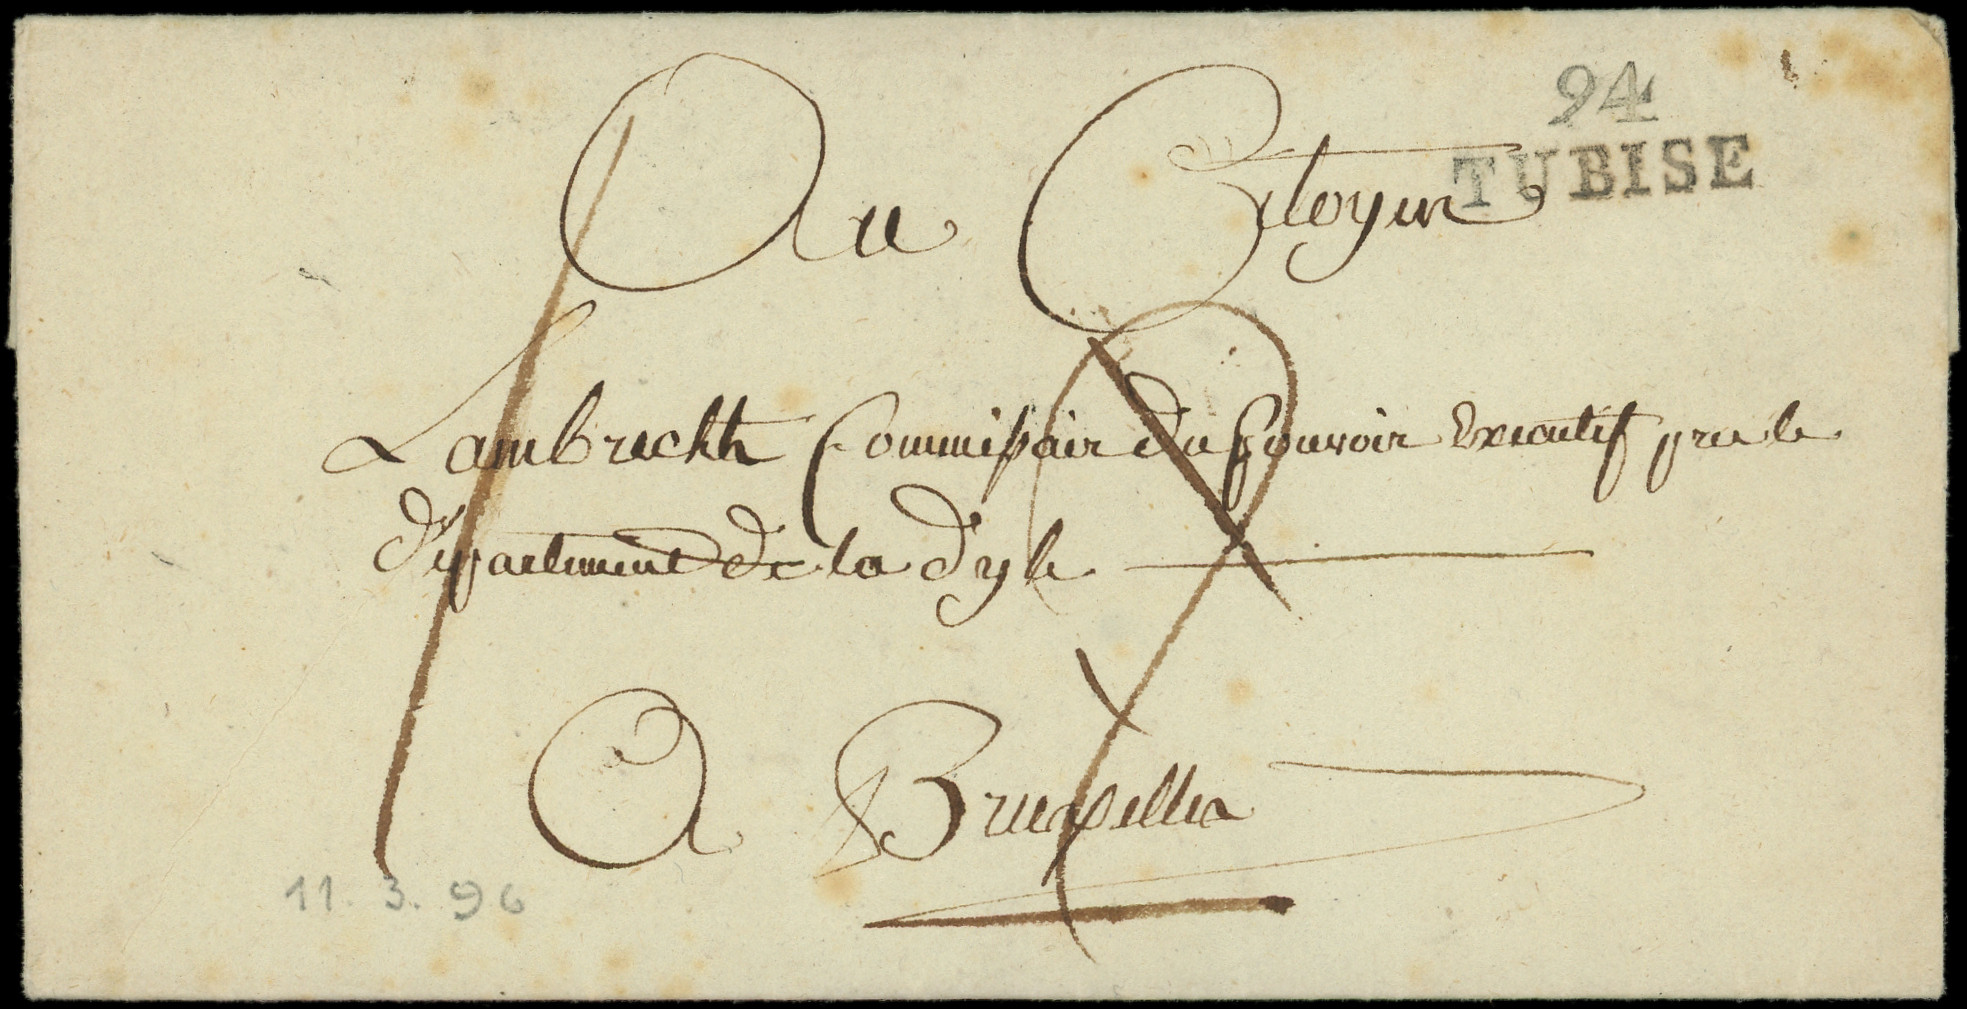 94
TUBISE
Au Citoyen
Lambrechts Commissair du Pouvoir Executif pre le
Departement de la Dyle
A Bruxelles
11. 3. 96